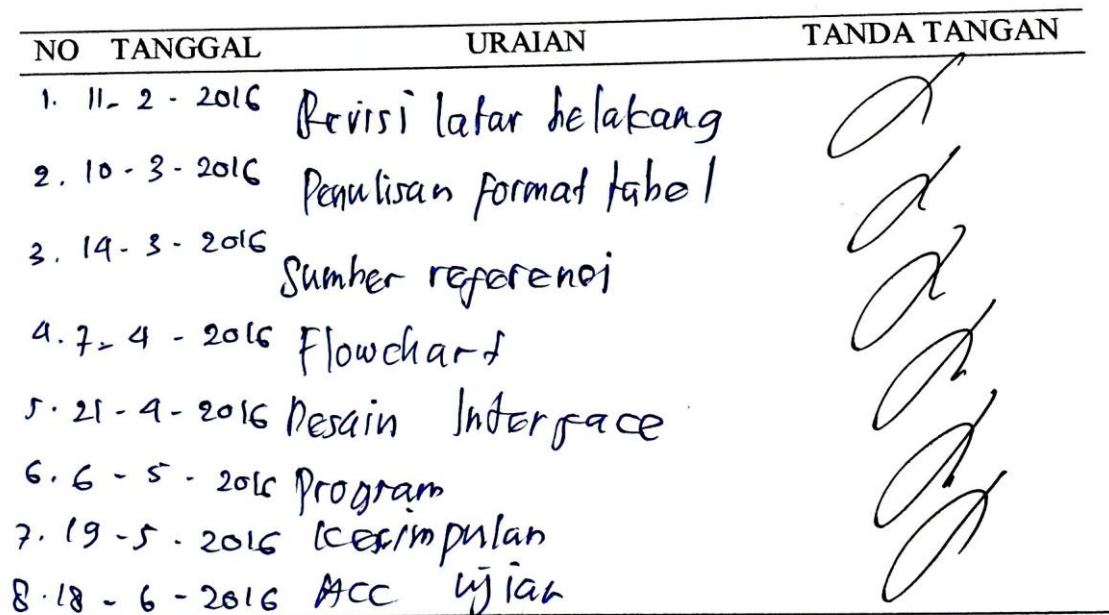 NO TANGGAL URAIAN TANDA TANGAN
1. 11-2-2016 Revisi latar belakang
2. 10-3-2016 Penulisan format tabel
3. 14-3-2016 Sumber referensi
4. 7-4-2016 Flowchart
5. 21-4-2016 Desain Interface
6. 6-5-2016 Program
7. 19-5-2016 Kesimpulan
8. 18-6-2016 ACC ujian